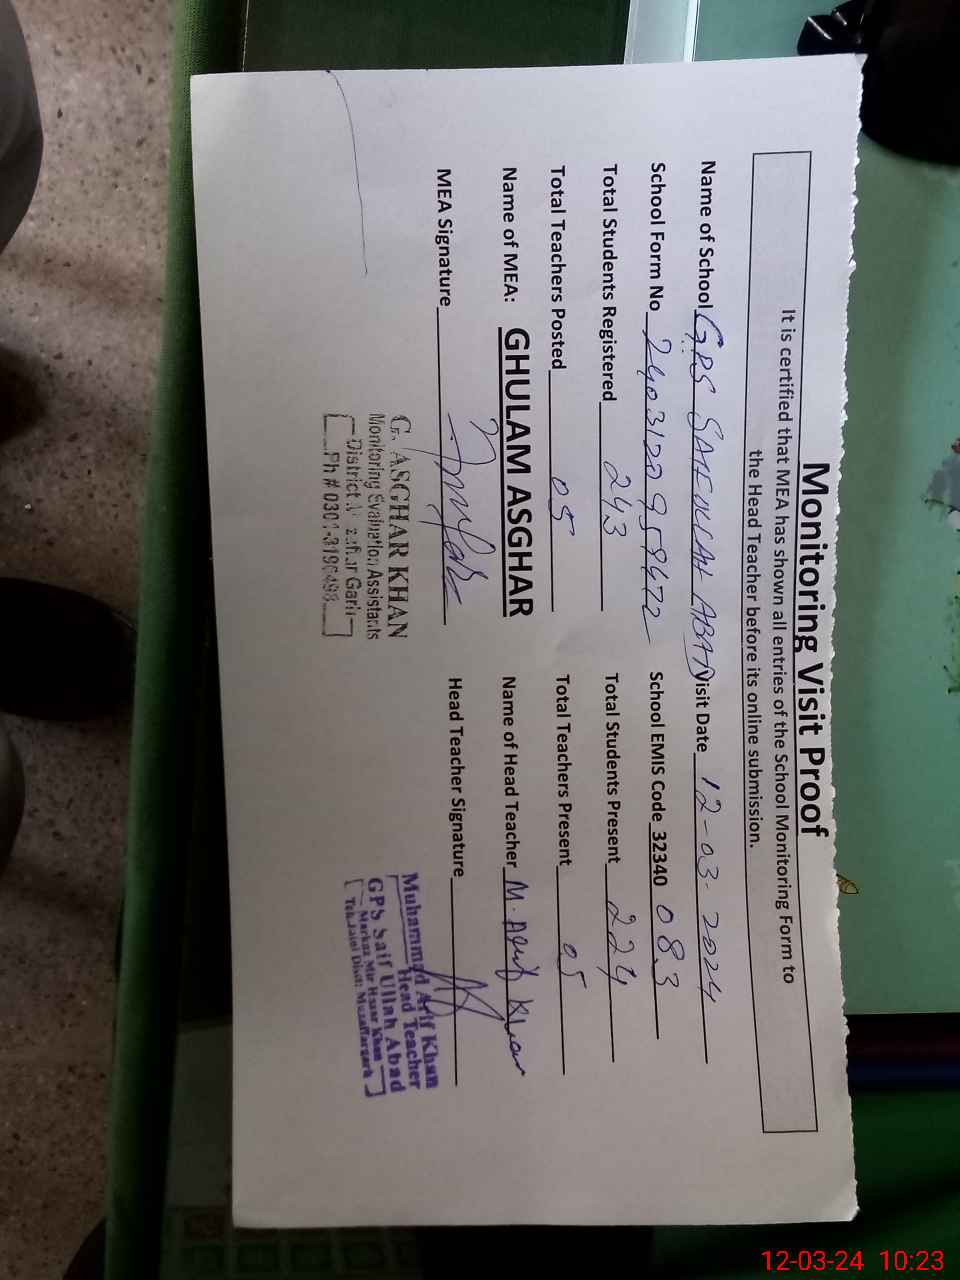 Monitoring Visit Proof
It is certified that MEA has shown all entries of the School Monitoring Form to
the Head Teacher before its online submission.
Name of School GPS SAIFULLAH ABAD Visit Date 12-03-2024
School Form No School EMIS Code 32340 083
Total Students Registered 243 Total Students Present 224
Total Teachers Posted 05 Total Teachers Present 05
Name of MEA: GHULAM ASGHAR Name of Head Teacher M. Arif Khan
MEA Signature Head Teacher Signature
G. ASGHAR KHAN
Monitoring Evaluation Assistants
District Garh
Ph #
Muhammad Arif Khan
Head Teacher
GPS Saif Ullah Abad
Markaz Mir Khan
Teh. Distt: Muzaffargarh
12-03-24 10:23